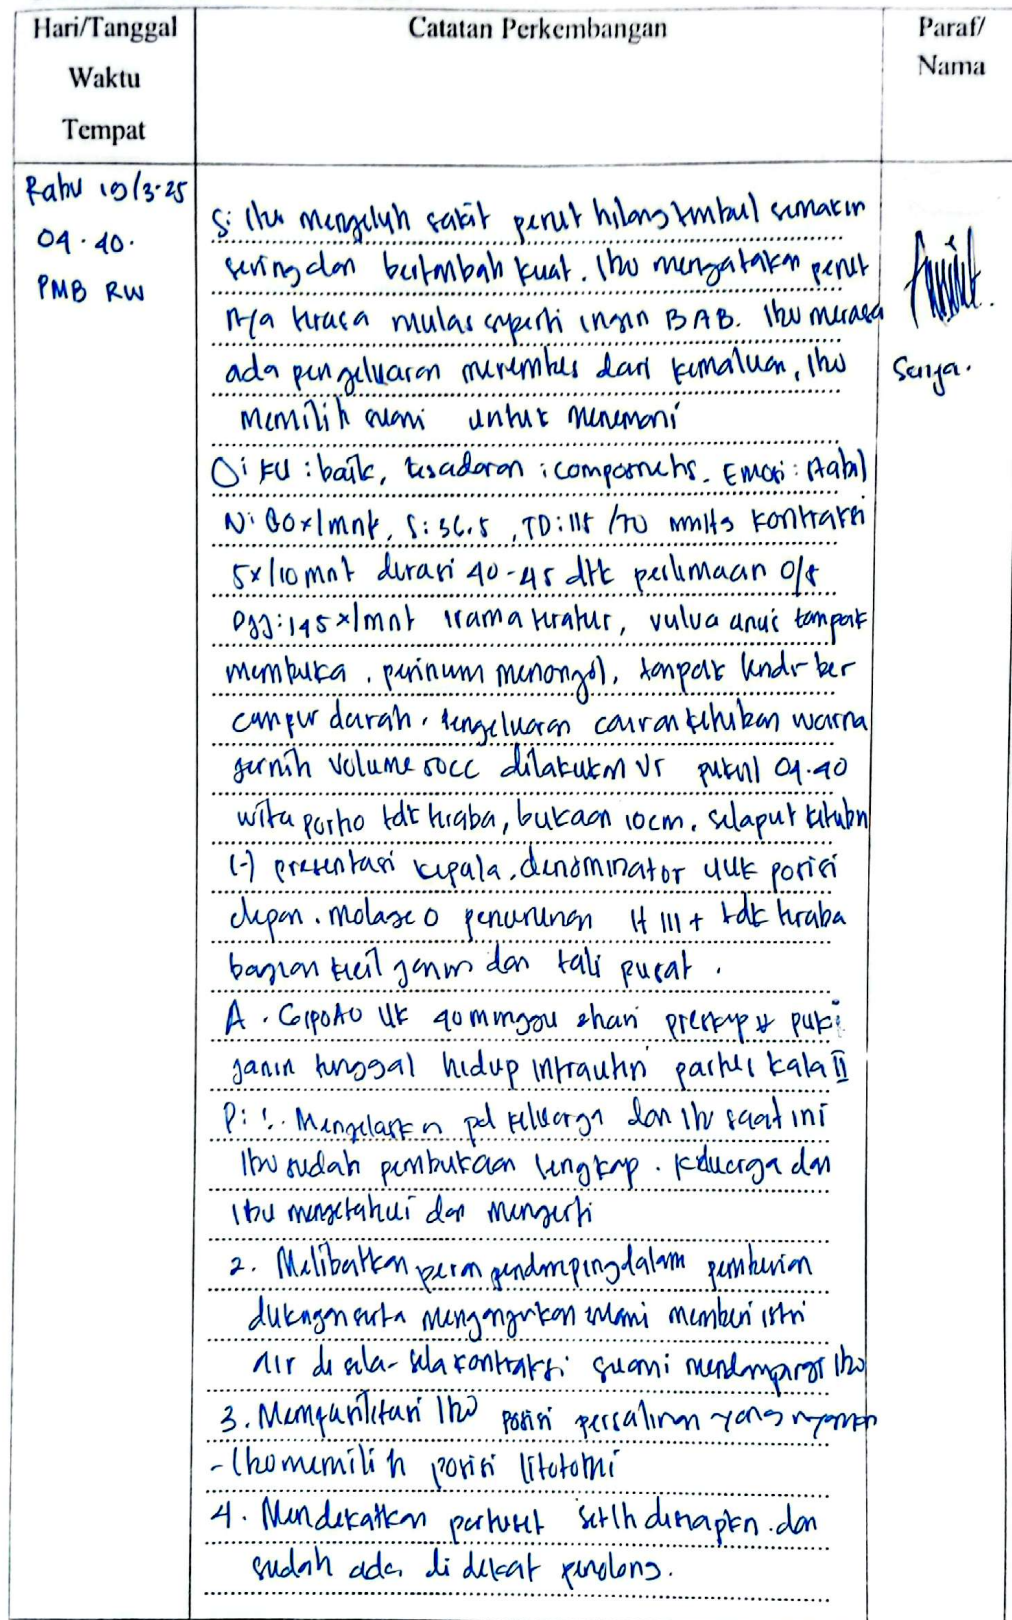 Hari/Tanggal
Waktu
Tempat
Catatan Perkembangan
Paraf/
Nama
Rabu 19/3-25
04.40.
PMB RW
S: Ibu mengeluh sakit perut hilang timbul semakin
sering dan bertambah kuat. Ibu mengatakan perut
nya terasa mulas seperti ingin BAB. Ibu merasa
ada pengeluaran merembes dari kemaluan, Ibu
memilih suami untuk menemani
O: KU : baik, kesadaran : composmetis. Emosi : stabil
N: 80x/mnt, S: 36.5, TD: 115/70 mmHg kontraksi
5x/10 mnt durasi 40-45 dtk perlimaan 0/5
Djj: 145x/mnt irama teratur, vulva anus tampak
membuka, perinium menonjol, tampak lendir ber
campur darah. Pengeluaran cairan ketuban warna
jernih volume 50cc dilakukan VT pukul 04.40
wita portio tdk teraba, bukaan 10cm, selaput ketubn
(-) presentasi kepala, denominator UUK posisi
depan. molase 0 penurunan H III+ tdk teraba
bagian kecil janin dan tali pusat.
A. UK 40 minggu 2 hari preskep puki
janin tunggal hidup intrauteri partus kala II
P: 1. Menjelaskn pd keluarga dan ibu saat ini
Ibu sudah pembukaan lengkap. Keluarga dan
Ibu mengetahui dan mengerti
2. Melibatkan peran pendamping dalam pemberian
dukungan serta menganjurkan suami memberi istri
air di sela-sela kontraksi suami mendampingi Ibu
3. Memfasilitasi Ibu posisi persalinan yang nyaman
- Ibu memilih posisi litotomi
4. Mendekatkan partuset setlh disiapkn. dan
sudah ada di dekat penolong.
Surya.